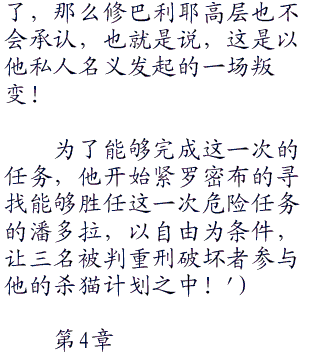 了，那么修巴利耶高层也不
会承认，也就是说，这是以
他私人名义发起的一场叛
变！
为了能够完成这一次的
任务，他开始紧罗密布的寻
找能够胜任这一次危险任务
的潘多拉，以自由为条件，
让三名被判重刑破坏者参与
他的杀猫计划之中！')
第4章